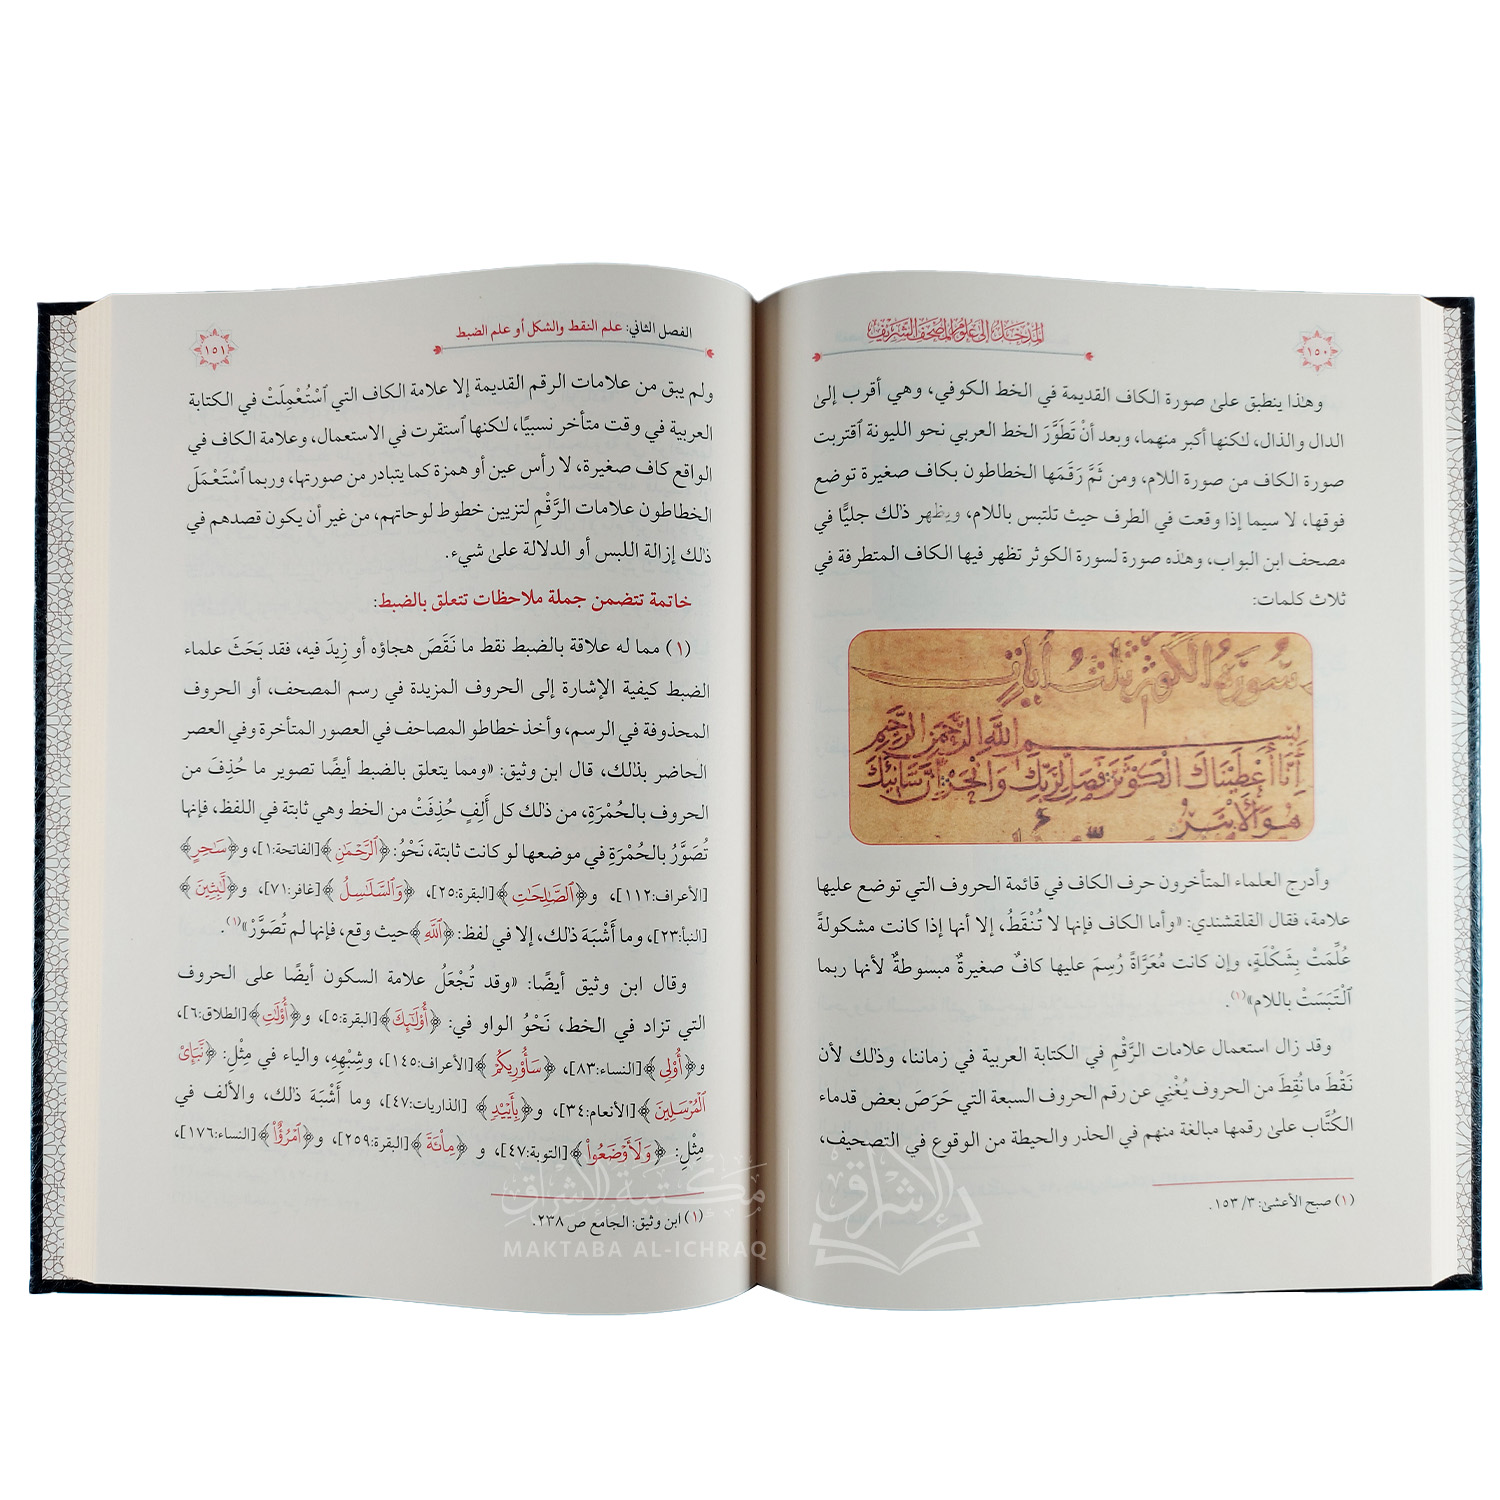 ١٥٠
المدخل إلى علوم المصحف الشريف
وهٰذا ينطبق علىٰ صورة الكاف القديمة في الخط الكوفي، وهي أقرب إلىٰ
الدال والذال، لٰكنها أكبر منهما، وبعد أنْ تَطَوَّرَ الخط العربي نحو الليونة ٱقتربت
صورة الكاف من صورة اللام، ومن ثَمَّ رَقَمَها الخطاطون بكاف صغيرة توضع
فوقها، لا سيما إذا وقعت في الطرف حيث تلتبس باللام، ويظهر ذٰلك جليًّا في
مصحف ابن البواب، وهٰذه صورة لسورة الكوثر تظهر فيها الكاف المتطرفة في
ثلاث كلمات:
سورة الكوثر ثلث آيات
بسم الله الرحمن الرحيم
إنا أعطيناك الكوثر فصل لربك وانحر إن شانئك
هو الأبتر
وأدرج العلماء المتأخرون حرف الكاف في قائمة الحروف التي توضع عليها
علامة، فقال القلقشندي: «وأما الكاف فإنها لا تُنْقَطُ، إلا أنها إذا كانت مشكولةً
عُلِّمَتْ بِشَكْلَةٍ، وإن كانت مُعَرَّاةً رُسِمَ عليها كافٌ صغيرةٌ مبسوطةٌ لأنها ربما
ٱلْتَبَسَتْ باللام»(١).
وقد زال استعمال علامات الرَّقْمِ في الكتابة العربية في زماننا، وذٰلك لأن
نَقْطَ ما نُقِطَ من الحروف يُغْنِي عن رقم الحروف السبعة التي حَرَصَ بعض قدماء
الكُتَّاب علىٰ رقمها مبالغة منهم في الحذر والحيطة من الوقوع في التصحيف،
(١) صبح الأعشىٰ: ٣/ ١٥٣.
الفصل الثاني: علم النقط والشكل أو علم الضبط
١٥١
ولم يبق من علامات الرقم القديمة إلا علامة الكاف التي ٱسْتُعْمِلَتْ في الكتابة
العربية في وقت متأخر نسبيًّا، لٰكنها ٱستقرت في الاستعمال، وعلامة الكاف في
الواقع كاف صغيرة، لا رأس عين أو همزة كما يتبادر من صورتها، وربما ٱسْتَعْمَلَ
الخطاطون علامات الرَّقْمِ لتزيين خطوط لوحاتهم، من غير أن يكون قصدهم في
ذٰلك إزالة اللبس أو الدلالة علىٰ شيء.
خاتمة تتضمن جملة ملاحظات تتعلق بالضبط:
(١) مما له علاقة بالضبط نقط ما نَقَّصَ هجاؤه أو زِيدَ فيه، فقد بَحَثَ علماء
الضبط كيفية الإشارة إلى الحروف المزيدة في رسم المصحف، أو الحروف
المحذوفة في الرسم، وأخذ خطاطو المصاحف في العصور المتأخرة وفي العصر
الحاضر بذٰلك، قال ابن وثيق: «ومما يتعلق بالضبط أيضًا تصوير ما حُذِفَ من
الحروف بالحُمْرَةِ، من ذٰلك كل أَلِفٍ حُذِفَتْ من الخط وهي ثابتة في اللفظ، فإنها
تُصَوَّرُ بالحُمْرَةِ في موضعها لو كانت ثابتة، نَحْوُ: ﴿ٱلرَّحْمَٰنِ﴾[الفاتحة:١]، و﴿سَٰحِرٍ﴾
[الأعراف:١١٢]، و﴿ٱلصَّٰلِحَٰتِ﴾[البقرة:٢٥]، ﴿وَٱلسَّلَٰسِلُ﴾[غافر:٧١]، و﴿لَّٰبِثِينَ﴾
[النبأ:٢٣]، وما أَشْبَهَ ذٰلك، إلا في لفظ: ﴿ٱللَّه﴾حيث وقع، فإنها لم تُصَوَّرْ»(١).
وقال ابن وثيق أيضًا: «وقد تُجْعَلُ علامة السكون أيضًا على الحروف
التي تزاد في الخط، نَحْوُ الواو في: ﴿أُو۟لَٰٓئِكَ﴾[البقرة:٥]، و﴿أُو۟لَٰتِ﴾[الطلاق:٦]،
و﴿أُو۟لِى﴾[النساء:٨٣]، ﴿سَأُو۟رِيكُمْ﴾[الأعراف:١٤٥]، وشِبْهِهِ، والياء في مِثْلِ: ﴿نَّبَإِى۟
ٱلْمُرْسَلِينَ﴾[الأنعام:٣٤]، و﴿بِأَيْي۟دٍ﴾[الذاريات:٤٧]، وما أَشْبَهَ ذلك، والألف في
مِثْلِ: ﴿وَلَأَا۟وْضَعُوا۟﴾[التوبة:٤٧]، و ﴿مِا۟ئَةَ﴾[البقرة:٢٥٩]، و﴿ٱمْرُؤٌا۟﴾[النساء:١٧٦]،
(١) ابن وثيق: الجامع ص ٢٣٨.
مكتبة الإشراق
MAKTABA AL-ICHRAQ
الإشراق